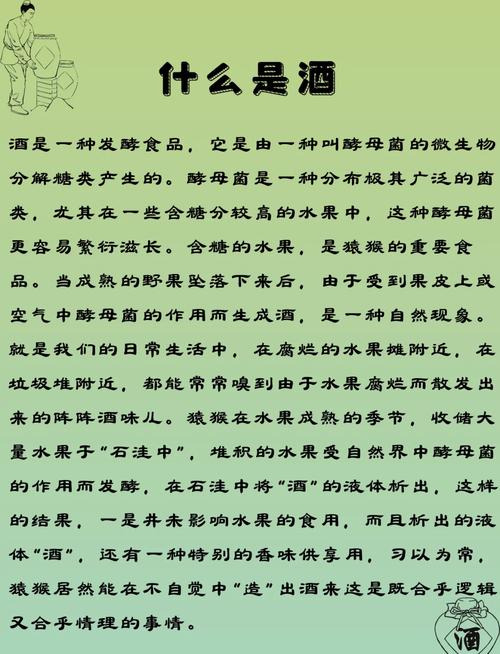 什么是酒
酒是一种发酵食品，它是由一种叫酵母菌的微生物
分解糖类产生的。酵母菌是一种分布极其广泛的菌
类，尤其在一些含糖分较高的水果中，这种酵母菌
更容易繁衍滋长。含糖的水果，是猿猴的重要食
品。当成熟的野果坠落下来后，由于受到果皮上或
空气中酵母菌的作用而生成酒，是一种自然现象。
就是我们的日常生活中，在腐烂的水果摊附近，在
垃圾堆附近，都能常常嗅到由于水果腐烂而散发出
来的阵阵酒味儿。猿猴在水果成熟的季节，收储大
量水果于“石洼中”，堆积的水果受自然界中酵母菌
的作用而发酵，在石洼中将“酒”的液体析出，这样
的结果，一是并未影响水果的食用，而且析出的液
体“酒”，还有一种特别的香味供享用，习以为常，
猿猴居然能在不自觉中“造”出酒来这是既合乎逻辑
又合乎情理的事情。
酒